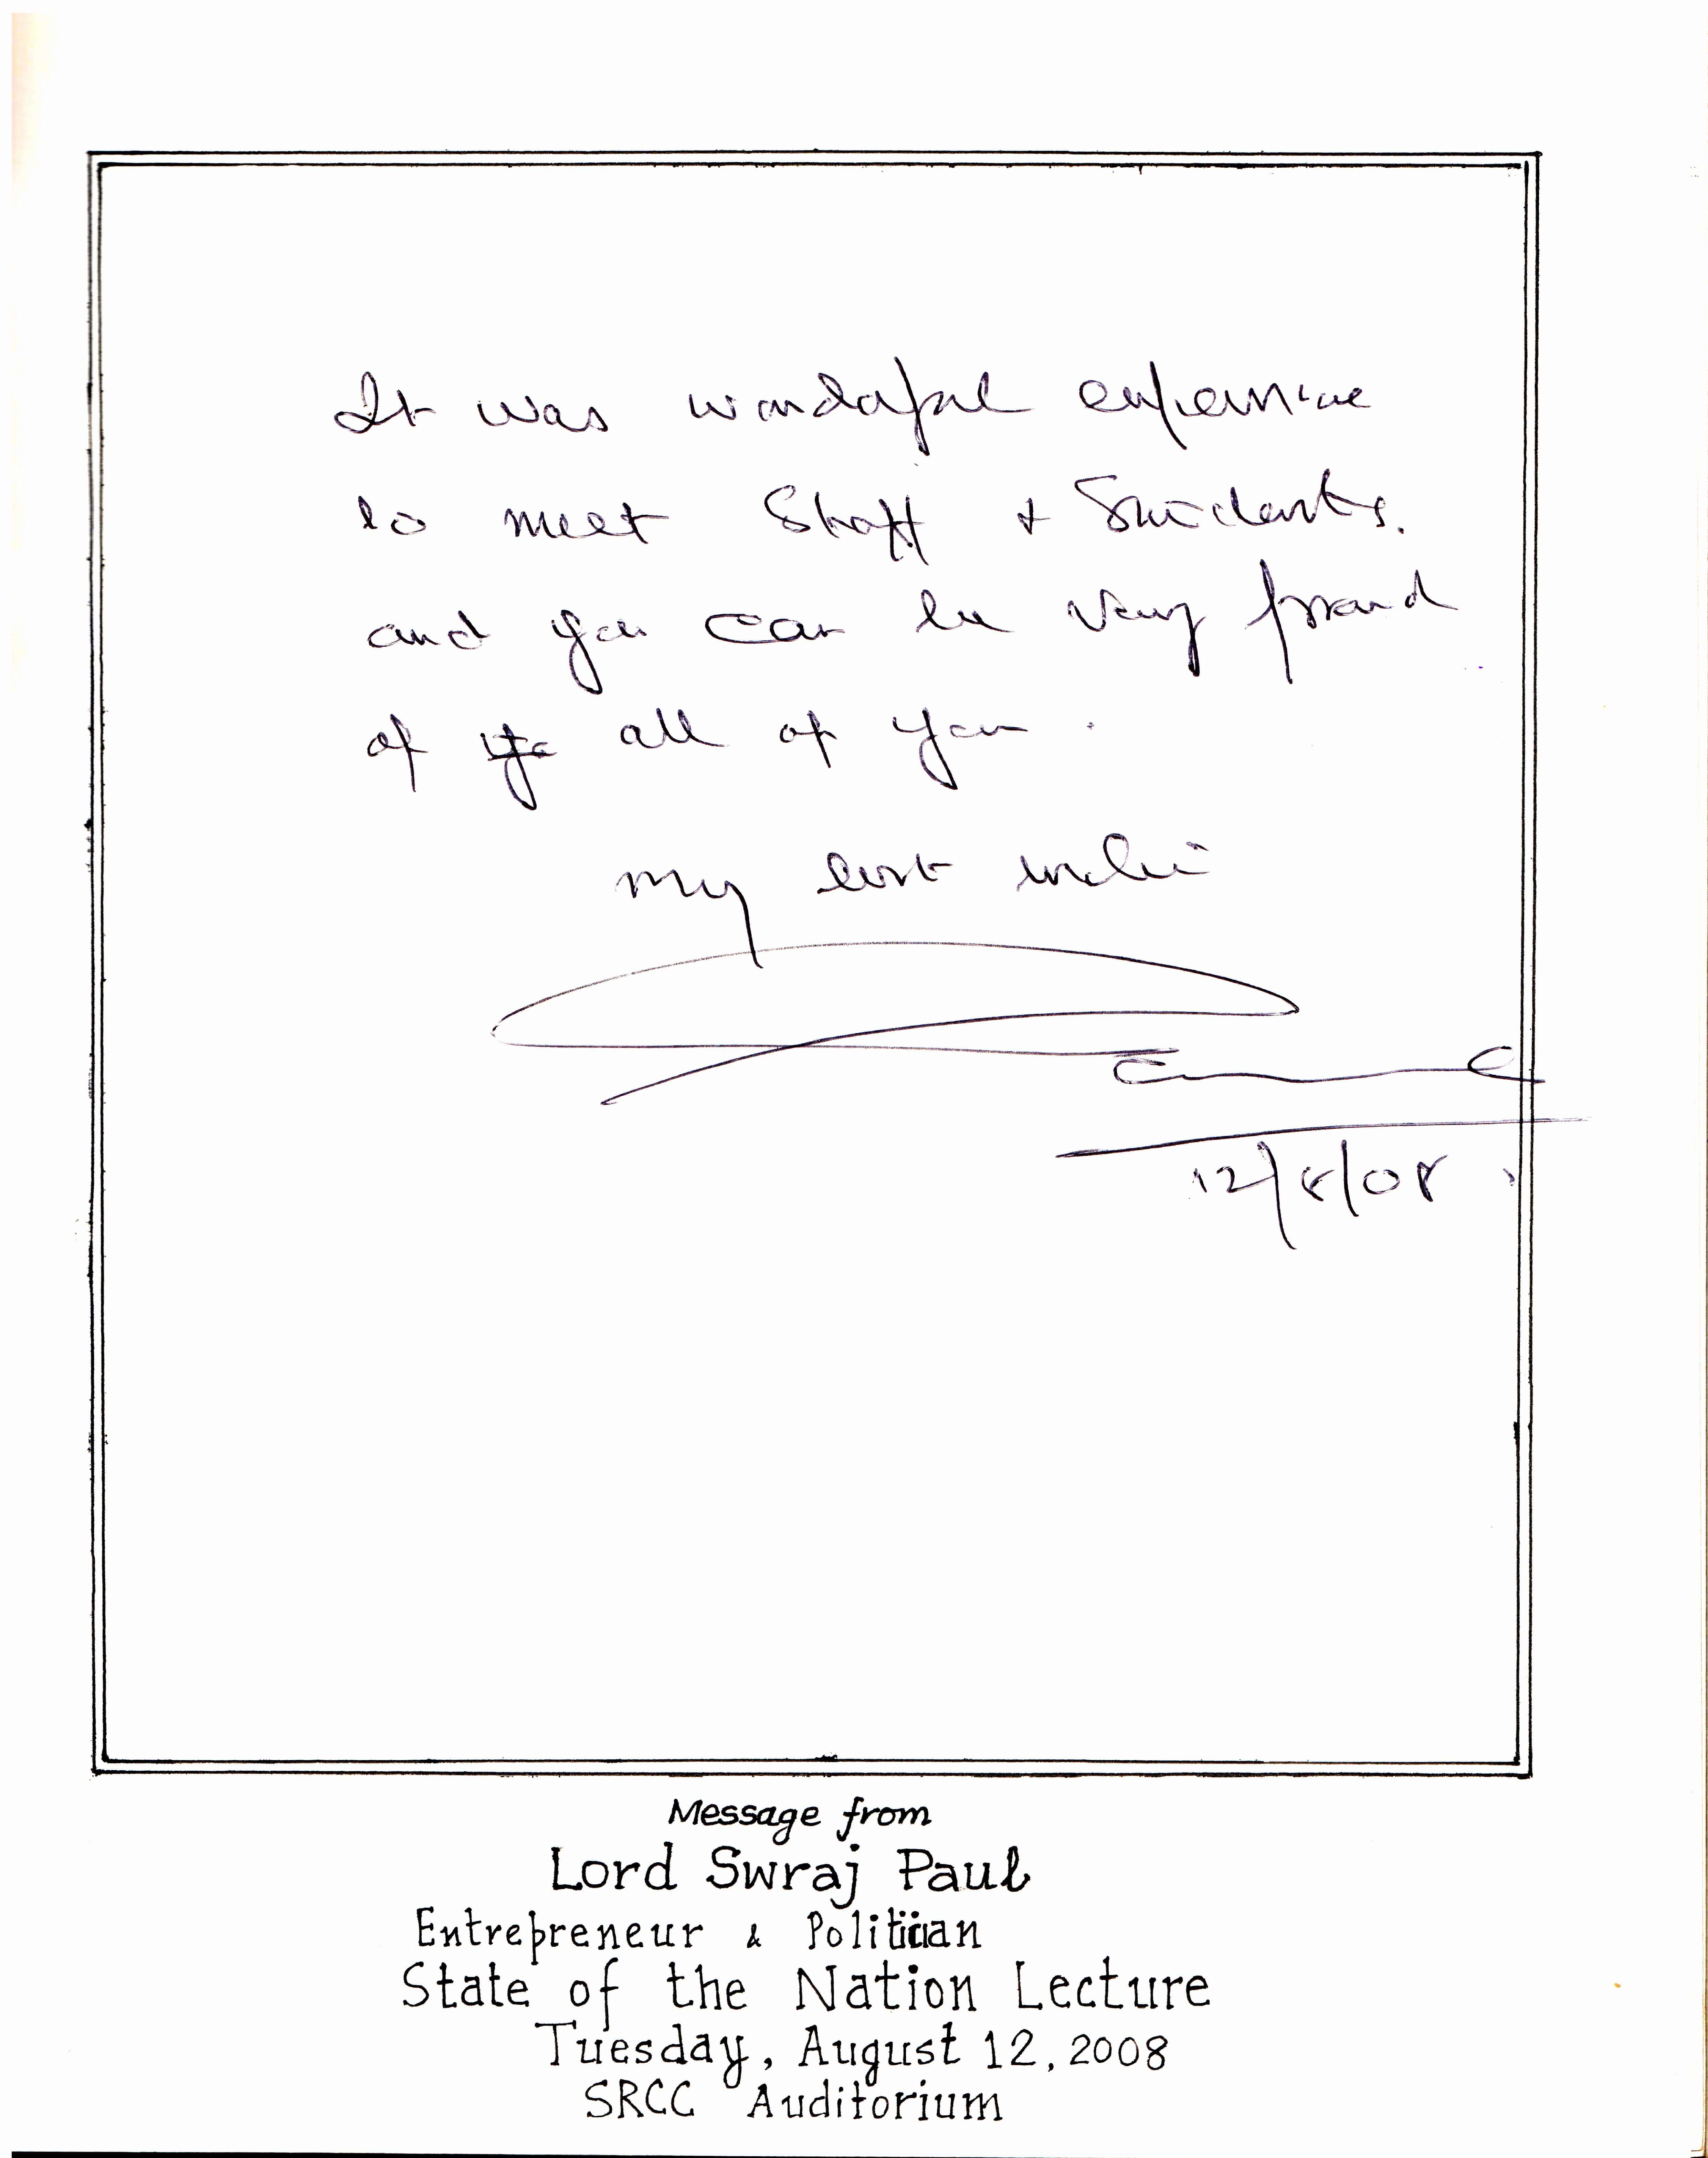 It was wonderful experience
to meet Staff + Students.
and you can be very proud
of yo all of you.
my best wishes
12/8/08
Message from
Lord Swraj Paul
Entrepreneur & Politician
State of the Nation Lecture
Tuesday, August 12, 2008
SRCC Auditorium